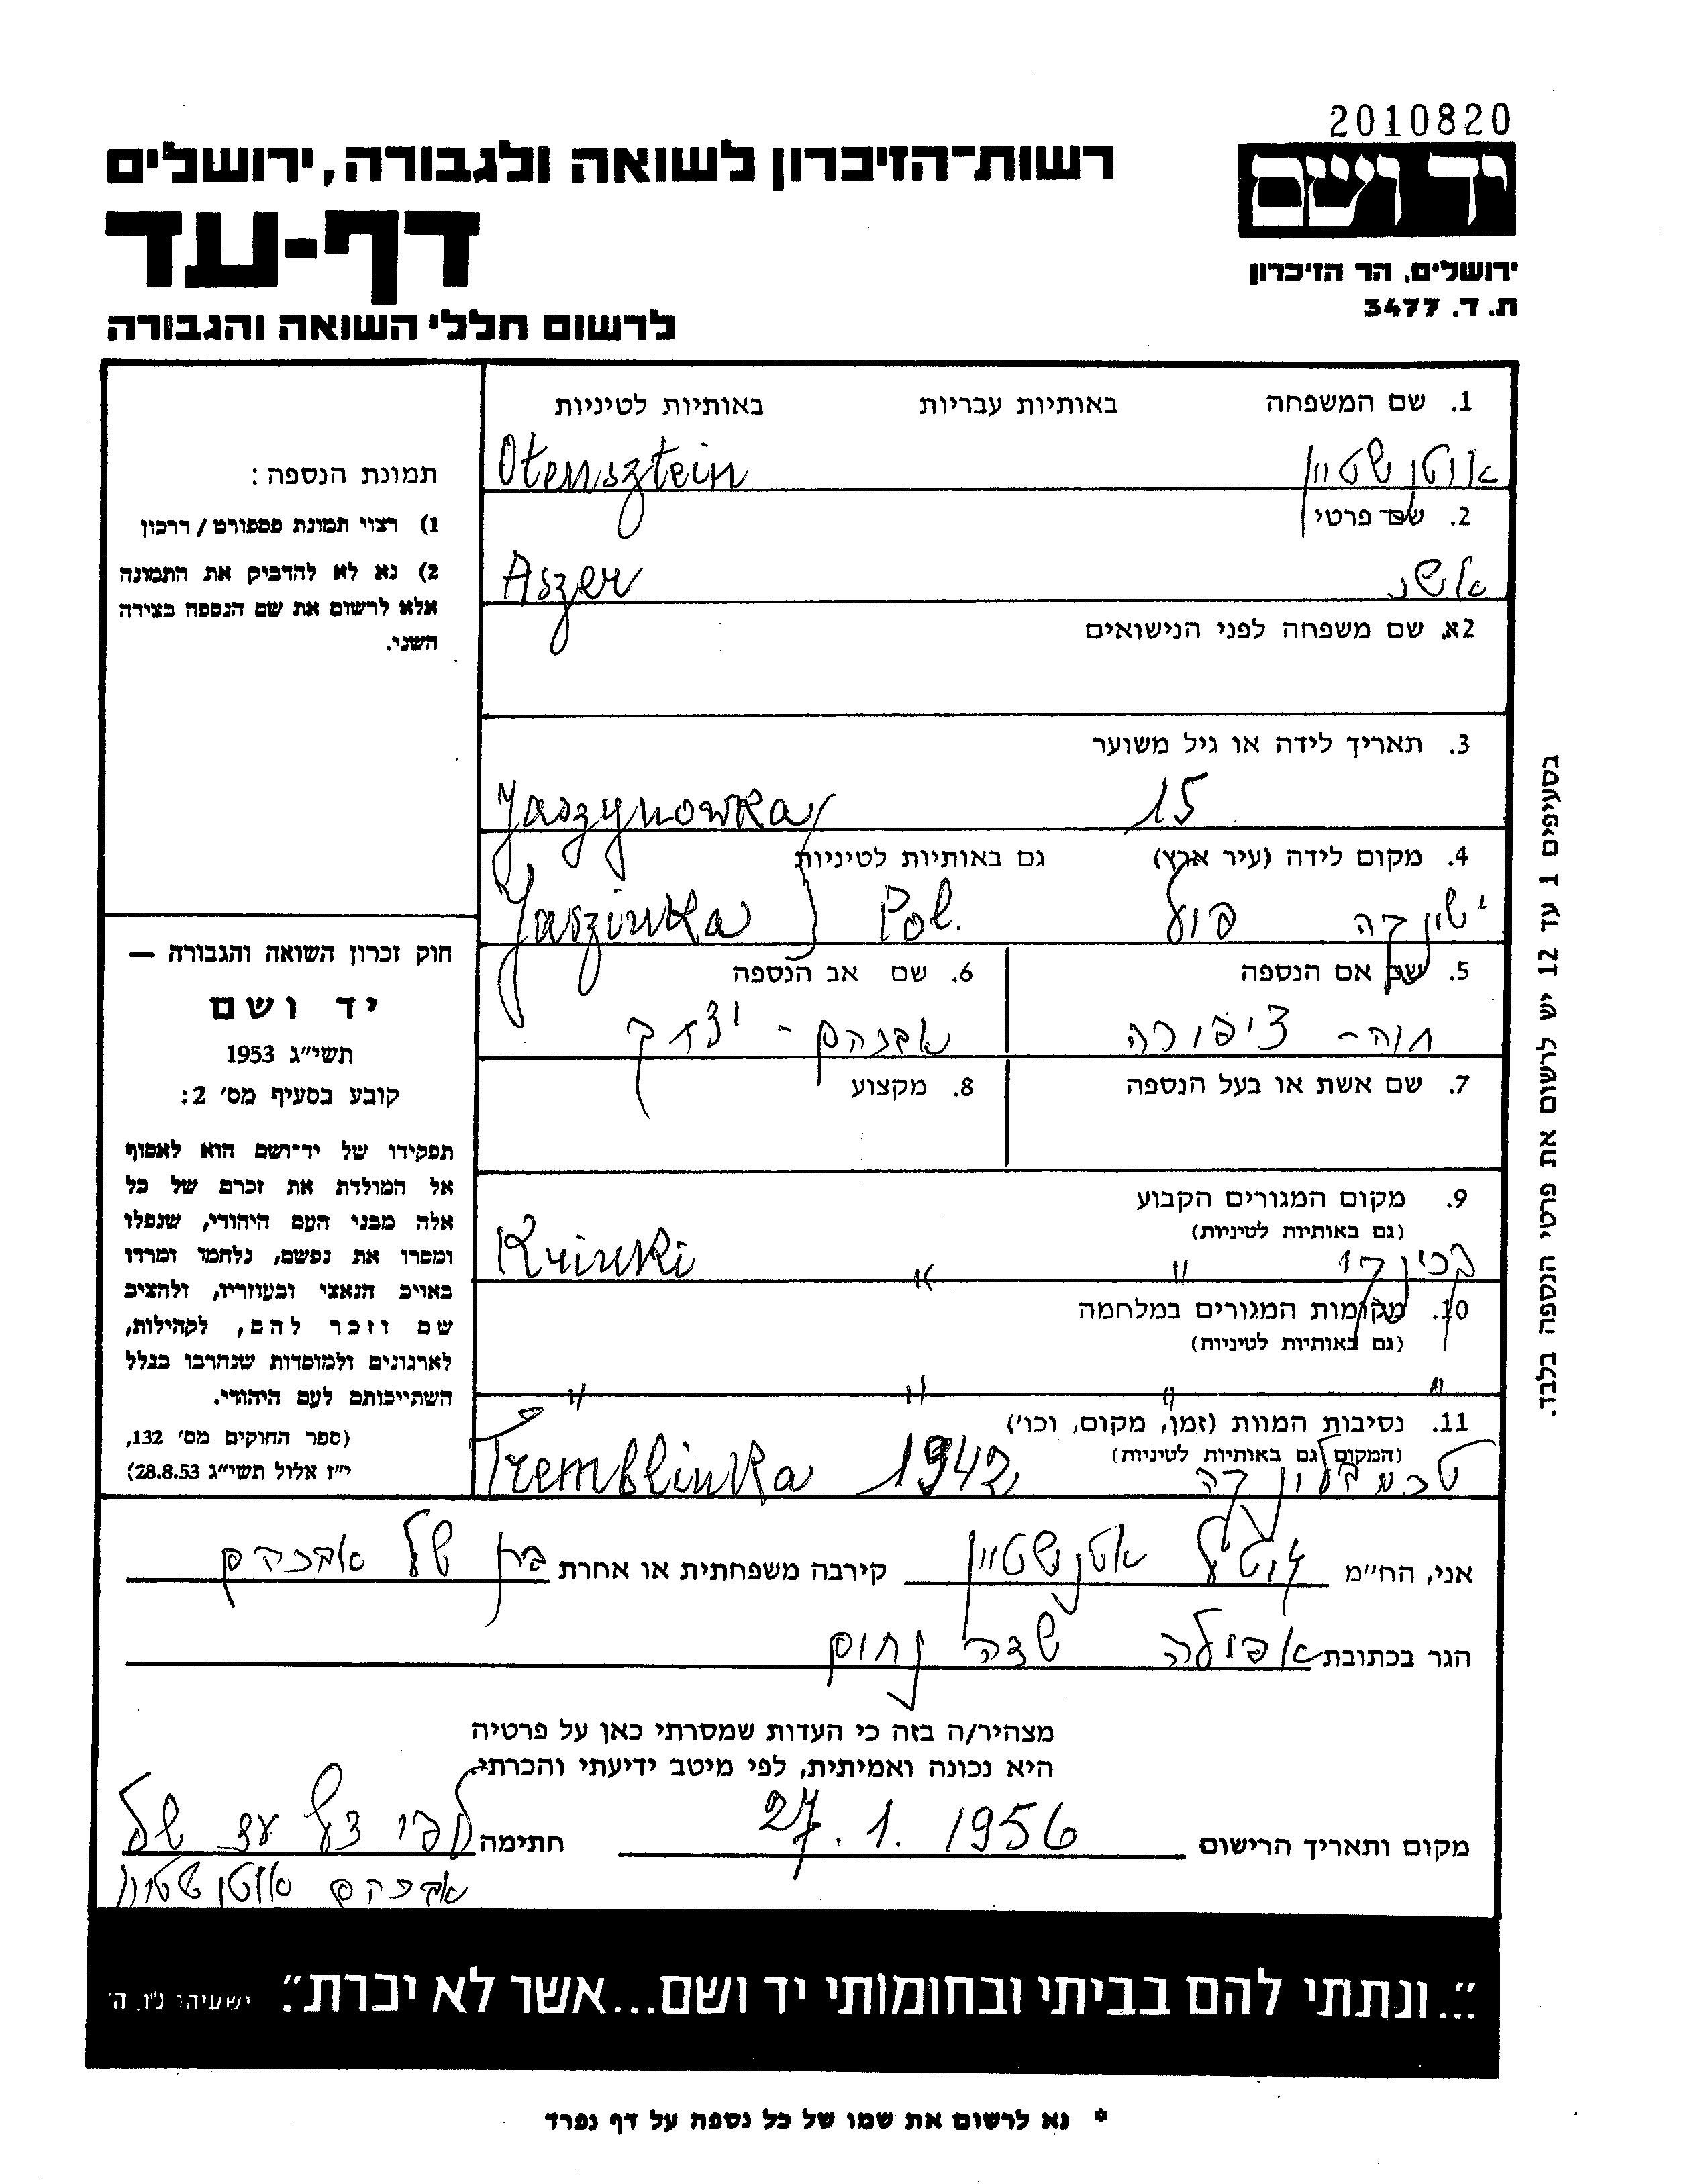 2010820
יד ושם
רשות־הזיכרון לשואה ולגבורה, ירושלים
דף-עד
ירושלים, הר הזיכרון
ת. ד. 3477
לרשום חללי השואה והגבורה
1. שם המשפחה באותיות עבריות באותיות לטיניות
אוטנשטיין Otensztein
2. שם פרטי
אשר Aszer
2א. שם משפחה לפני הנישואים
3. תאריך לידה או גיל משוער
15 Jaszynowka
4. מקום לידה (עיר ארץ) גם באותיות לטיניות
ישינקה פול Pol. Jaszinka
5. שם אם הנספה 6. שם אב הנספה
חוה - ציפורה אברהם - יצחק
7. שם אשת או בעל הנספה 8. מקצוע
9. מקום המגורים הקבוע
(גם באותיות לטיניות)
קרינקי " " Krinki
10. מקומות המגורים במלחמה
(גם באותיות לטיניות)
" " " "
11. נסיבות המוות (זמן, מקום, וכו')
(המקום גם באותיות לטיניות)
טרמבלינקה 1942 Tremblinka
תמונת הנספה:
1) רצוי תמונת פספורט / דרכון
2) נא לא להדביק את התמונה
אלא לרשום את שם הנספה בצידה
השני.
חוק זכרון השואה והגבורה —
יד ושם
תשי"ג 1953
קובע בסעיף מס' 2:
תפקידו של יד־ושם הוא לאסוף
אל המולדת את זכרם של כל
אלה מבני העם היהודי, שנפלו
ומסרו את נפשם, נלחמו ומרדו
באויב הנאצי ובעוזריו, ולהציב
שם וזכר להם, לקהילות,
לארגונים ולמוסדות שנחרבו בגלל
השתייכותם לעם היהודי.
(ספר החוקים מס' 132,
י"ז אלול תשי"ג 28.8.53)
בסעיפים 1 עד 12 יש לרשום את פרטי הנספה בלבד.
אני, הח"מ אטנשטיין קירבה משפחתית או אחרת בן של אברהם
הגר בכתובת אפולה שדה נחום
מצהיר/ה בזה כי העדות שמסרתי כאן על פרטיה
היא נכונה ואמיתית, לפי מיטב ידיעתי והכרתי.
מקום ותאריך הרישום 27.1.1956 חתימה לפי דף עד של
אברהם אוטנשטיין
"...ונתתי להם בביתי ובחומותי יד ושם...אשר לא יכרת". ישעיהו נ"ו, ה'
* נא לרשום את שמו של כל נספה על דף נפרד